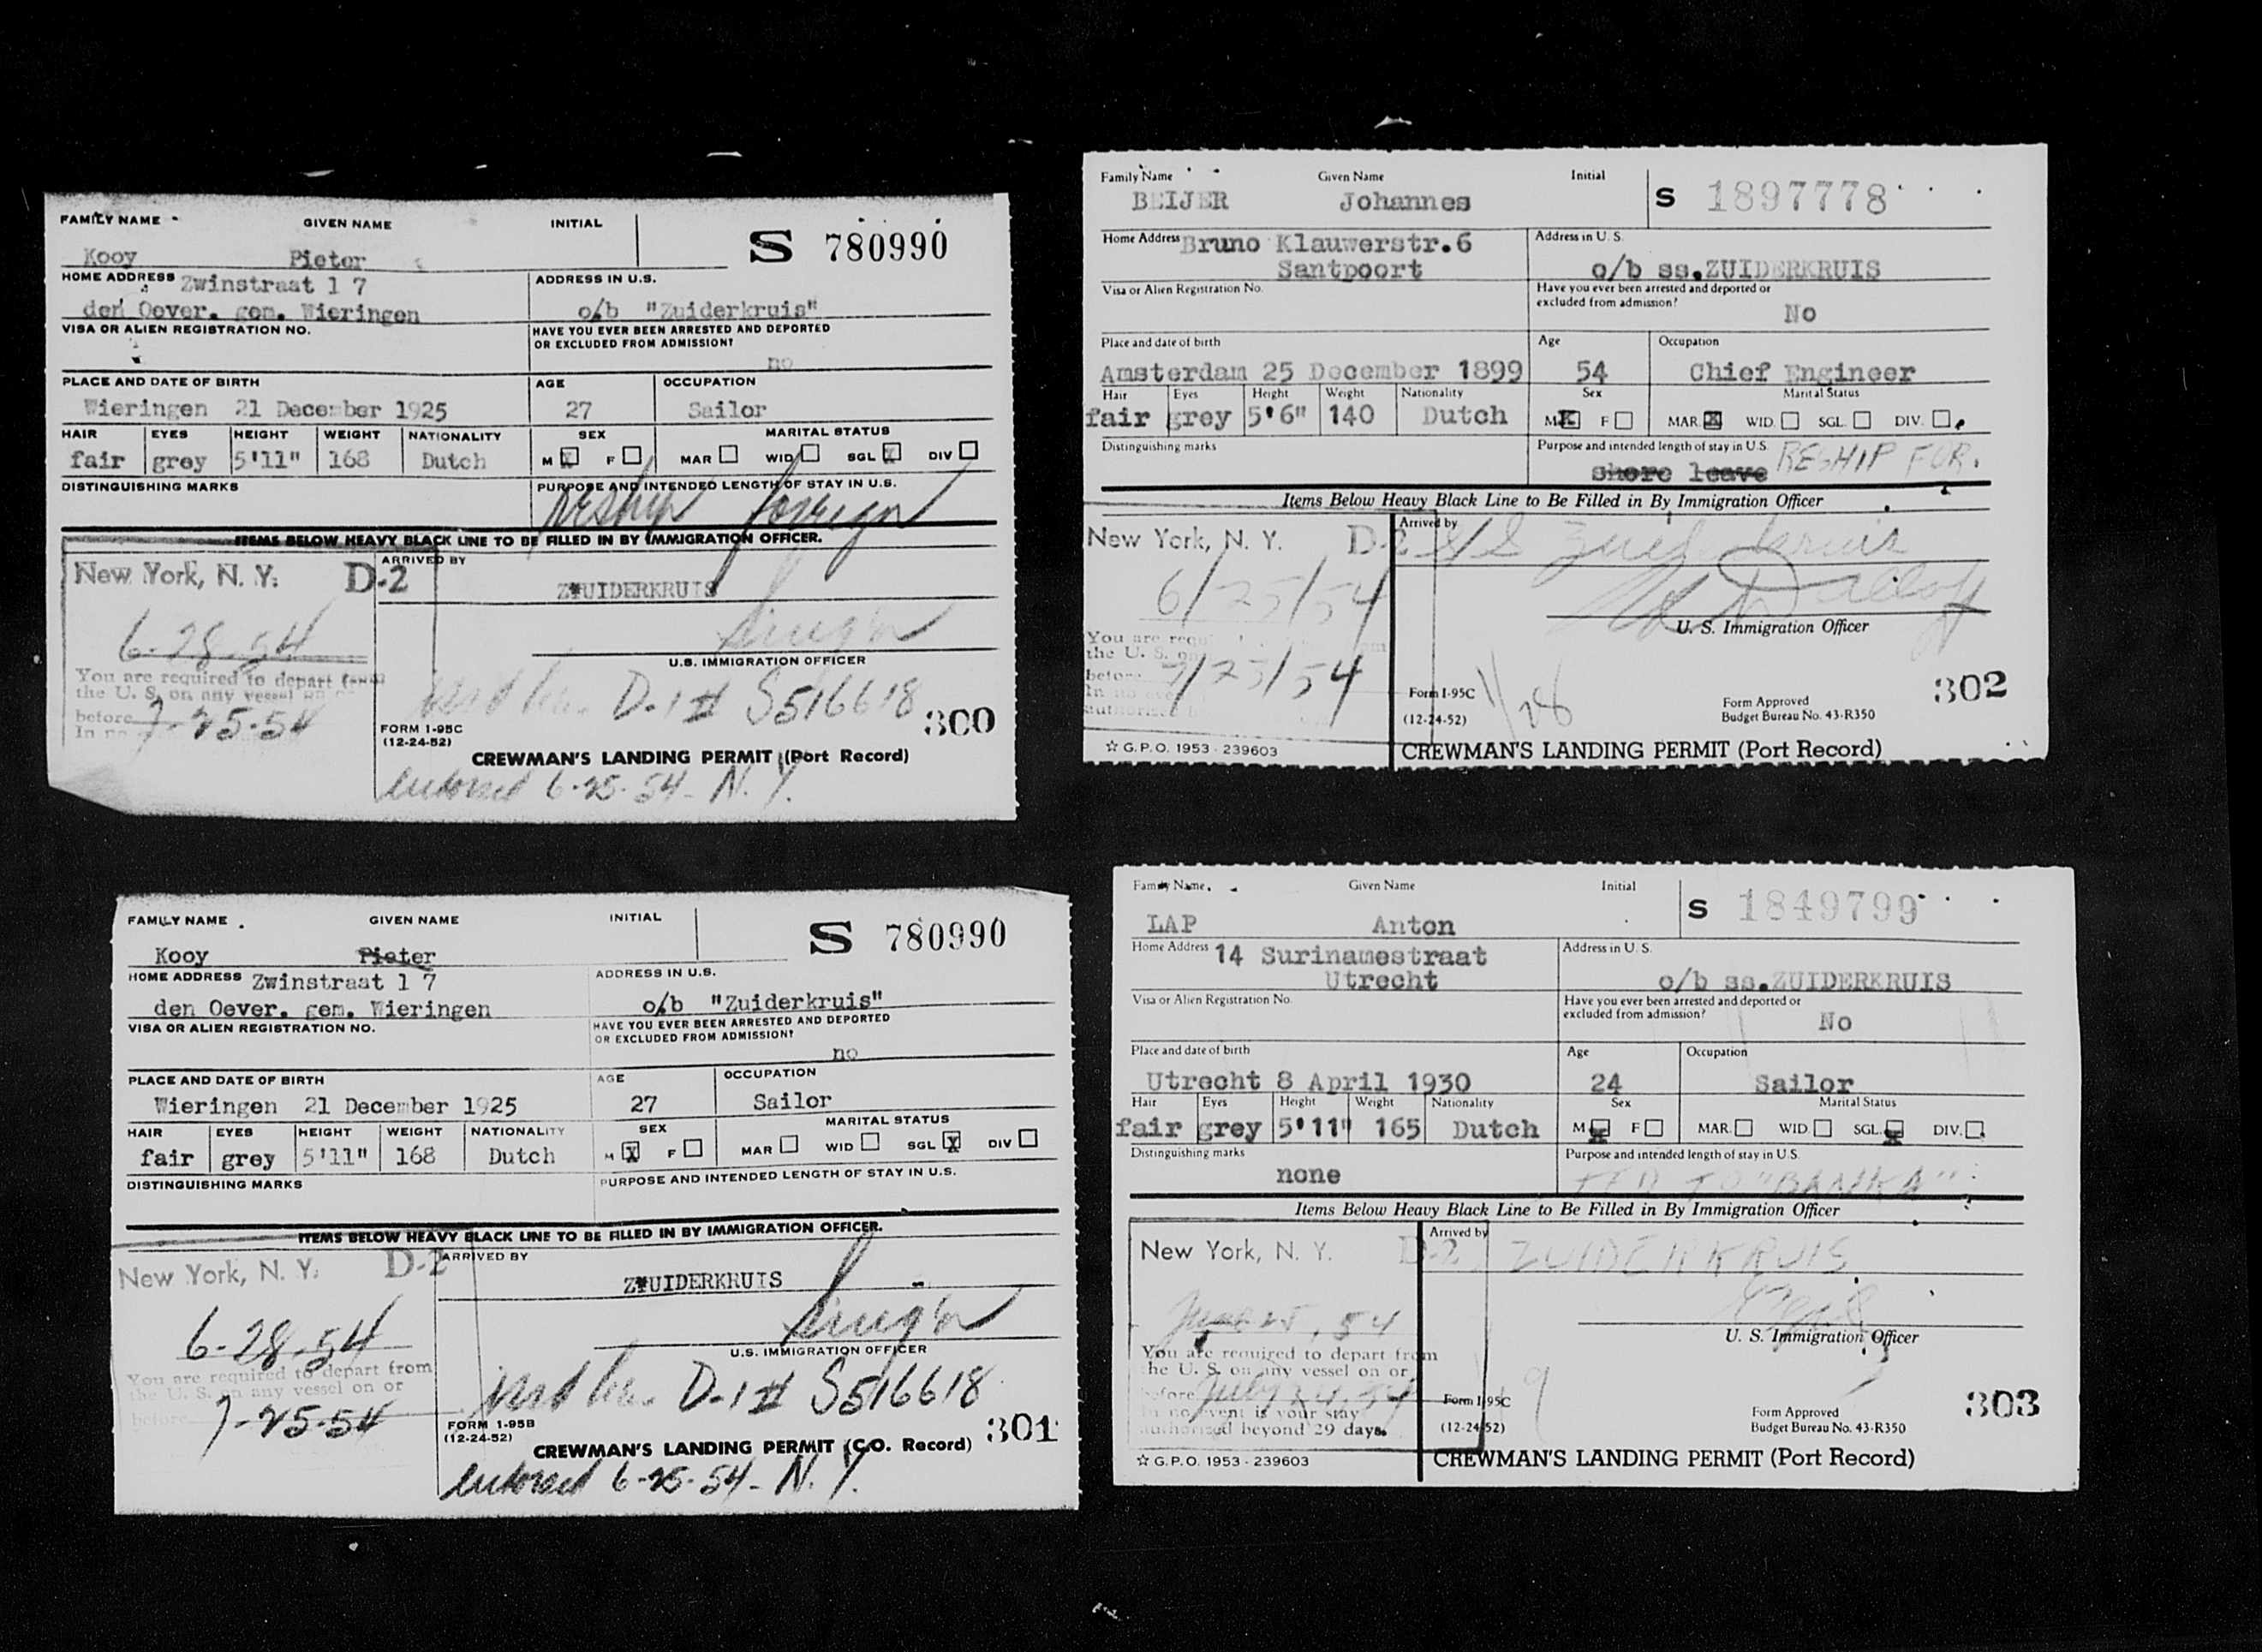 FAMILY NAME GIVEN NAME INITIAL
S 780990
Kooy Pieter
HOME ADDRESS Zwinstraat 1 7 ADDRESS IN U.S.
den Oever. gem. Wieringen o/b "Zuiderkruis"
VISA OR ALIEN REGISTRATION NO. HAVE YOU EVER BEEN ARRESTED AND DEPORTED
OR EXCLUDED FROM ADMISSION?
no
PLACE AND DATE OF BIRTH AGE OCCUPATION
Wieringen 21 December 1925 27 Sailor
HAIR EYES HEIGHT WEIGHT NATIONALITY SEX MARITAL STATUS
fair grey 5'11" 168 Dutch M X F MAR WID SGL X DIV
DISTINGUISHING MARKS PURPOSE AND INTENDED LENGTH OF STAY IN U.S.
reship foreign
ITEMS BELOW HEAVY BLACK LINE TO BE FILLED IN BY IMMIGRATION OFFICER.
New York, N. Y. D-2 ARRIVED BY
ZUIDERKRUIS
6-28-54
U.S. IMMIGRATION OFFICER
You are required to depart from
the U. S. on any vessel on or
before 7-25-54
D-1 # S516618
300
FORM I-95C
(12-24-52)
CREWMAN'S LANDING PERMIT (Port Record)
6-25-54 - N. Y.
FAMILY NAME GIVEN NAME INITIAL
S 780990
Kooy Pieter
HOME ADDRESS Zwinstraat 1 7 ADDRESS IN U.S.
den Oever. gem. Wieringen o/b "Zuiderkruis"
VISA OR ALIEN REGISTRATION NO. HAVE YOU EVER BEEN ARRESTED AND DEPORTED
OR EXCLUDED FROM ADMISSION?
no
PLACE AND DATE OF BIRTH AGE OCCUPATION
Wieringen 21 December 1925 27 Sailor
HAIR EYES HEIGHT WEIGHT NATIONALITY SEX MARITAL STATUS
fair grey 5'11" 168 Dutch M X F MAR WID SGL X DIV
DISTINGUISHING MARKS PURPOSE AND INTENDED LENGTH OF STAY IN U.S.
ITEMS BELOW HEAVY BLACK LINE TO BE FILLED IN BY IMMIGRATION OFFICER.
New York, N. Y. D-2 ARRIVED BY
ZUIDERKRUIS
6-28-54
U.S. IMMIGRATION OFFICER
You are required to depart from
the U. S. on any vessel on or
before 7-25-54
D-1 # S516618
FORM I-95B
(12-24-52)
301
CREWMAN'S LANDING PERMIT (C.O. Record)
6-25-54 - N. Y.
Family Name Given Name Initial
S 1897778
BEIJER Johannes
Home Address Bruno Klauwerstr.6 Address in U. S.
Santpoort o/b ss.ZUIDERKRUIS
Visa or Alien Registration No. Have you ever been arrested and deported or
excluded from admission?
No
Place and date of birth Age Occupation
Amsterdam 25 December 1899 54 Chief Engineer
Hair Eyes Height Weight Nationality Sex Marital Status
fair grey 5'6" 140 Dutch M X F MAR. X WID. SGL. DIV.
Distinguishing marks Purpose and intended length of stay in U.S.
shore leave RESHIP FOR.
Items Below Heavy Black Line to Be Filled in By Immigration Officer
New York, N. Y. D-2 Arrived by
SS Zuiderkruis
6/25/54
U. S. Immigration Officer
You are
the U. S. on
before 7/25/54
Form I-95C
(12-24-52)
Form Approved
Budget Bureau No. 43-R350
302
☆ G.P.O. 1953 - 239603
CREWMAN'S LANDING PERMIT (Port Record)
Family Name Given Name Initial
S 1849799
LAP Anton
Home Address 14 Surinamestraat Address in U. S.
Utrecht o/b ss.ZUIDERKRUIS
Visa or Alien Registration No. Have you ever been arrested and deported or
excluded from admission?
No
Place and date of birth Age Occupation
Utrecht 8 April 1930 24 Sailor
Hair Eyes Height Weight Nationality Sex Marital Status
fair grey 5'11" 165 Dutch M X F MAR. WID. SGL. X DIV.
Distinguishing marks Purpose and intended length of stay in U.S.
none TO "BANKA"
Items Below Heavy Black Line to Be Filled in By Immigration Officer
New York, N. Y. D-2 Arrived by
ZUIDERKRUIS
June 25, 54
U. S. Immigration Officer
You are required to depart from
the U. S. on any vessel on or
before July 24, 54
In no event is your stay
authorized beyond 29 days.
Form I-95C
(12-24-52)
Form Approved
Budget Bureau No. 43-R350
303
☆ G.P.O. 1953 - 239603
CREWMAN'S LANDING PERMIT (Port Record)